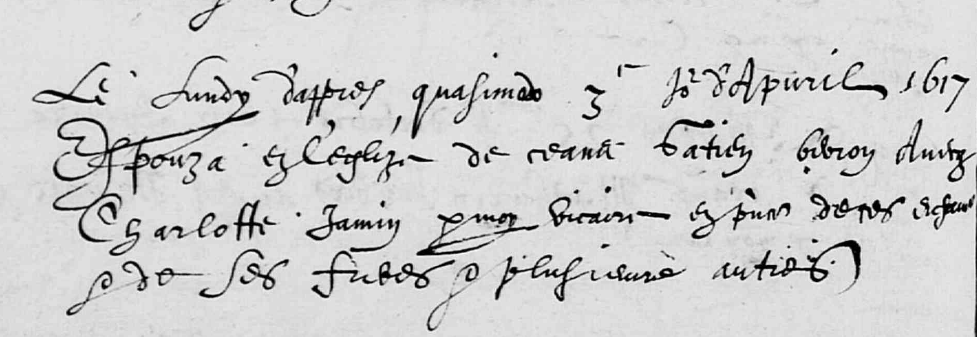 Le Lundy d'appres quasimodo 3e Jor d'Apvril 1617
Espouza en l'eglize de ceans Gatien bivron Avecq
Charlotte Jamin p moy vicaire en pnce de res
& de ses freres & plusieurs autres